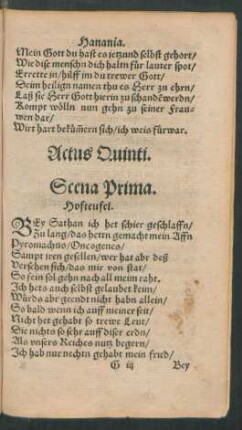 Hanania.
Mein Gott du hast es jetzund selbst gehort/
Wie dise menschn dich haltn für lauter spot/
Errette jn/hilff jm du trewer Gott/
Seim heilign namen thu es Herr zu ehrn/
Laß sie Herr Gott hierin zu schandē werdn/
Kompt wölln nun gehn zu seiner Frau-
wen dar/
Wirt hart bekūmern sich/ich weis fürwar.
Actus Quinti.
Scena Prima.
Hofteufel.
BEy Sathan ich het schier geschlaffn/
Zu lang/das hettn gemacht mein Affn
Pyromachus/Oncogenes/
Sampt iren gesellen/wer hat abr deß
Versehen sich/das mir von stat/
So fein sol gehn nach all meim raht.
Ich hets auch selbst gelaubet keim/
Würds abr geendt nicht habn allein/
So bald wenn ich auff meiner seit/
Nicht het gehabt so trewe Leut/
Die nichts so sehr auff diser erdn/
Als vnsers Reiches nutz begern/
Ich hab nur nechtn gehabt mein fried/
G iij Bey